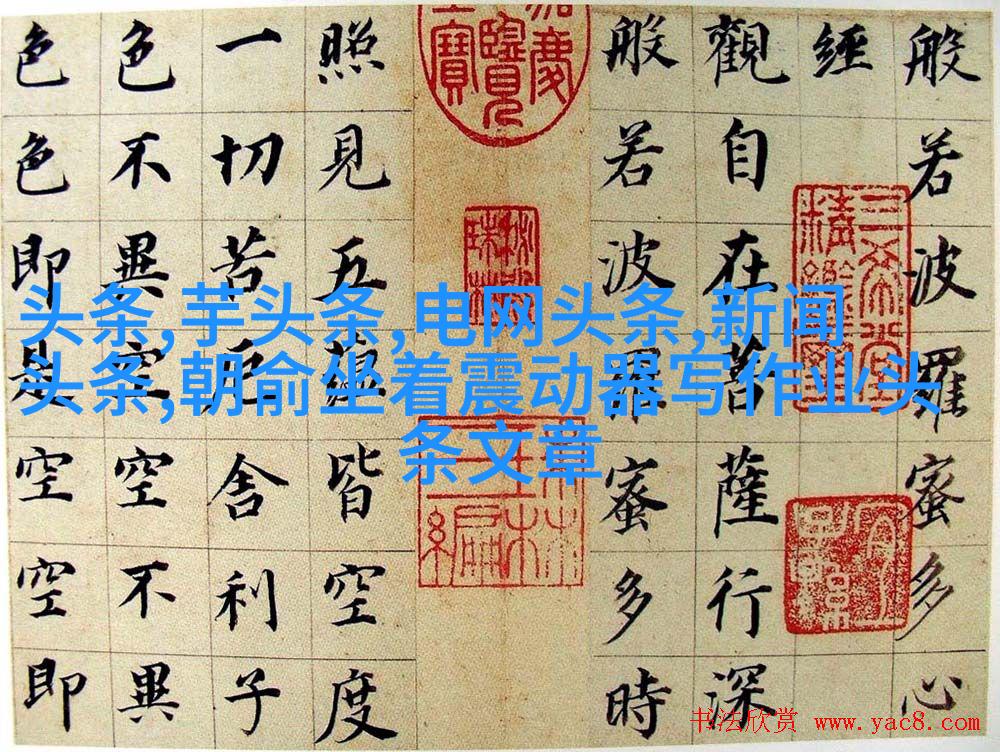 般若波羅蜜多心
經
觀自在菩薩行深
般若波羅蜜多時
照見五蘊皆空度
一切苦厄舍利子
色不異空空不異
色色即是空空即
三希堂精鑑璽
头条,芋头条,电网头条,新闻
头条,朝俞坐着震动器写作业头
条文章
书法欣赏 www.yac8.com